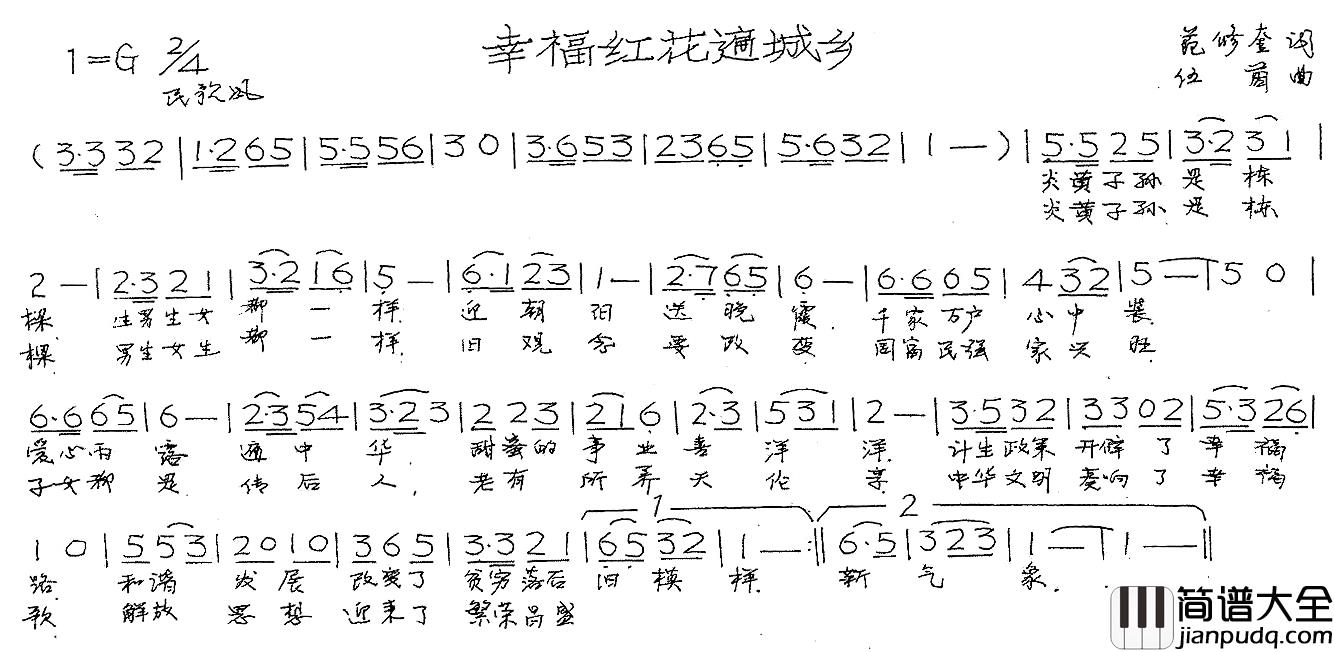 幸福红花遍城乡
1=G 2/4
民歌风
范修奎 词
伍 曲
( 3·3 3 2 | 1·2 6 5 | 5·5 5 6 | 3 0 | 3·6 5 3 | 2 3 6 5 | 5·6 3 2 | 1 — ) | 5·5 2 5 | 3·2 3 1 |
炎黄子孙 是 栋
炎黄子孙 是 栋
2 — | 2·3 2 1 | 3·2 1 6 | 5 — | 6·1 2 3 | 1 — | 2·7 6 5 | 6 — | 6·6 6 5 | 4 3 2 | 5 — | 5 0 |
樑 生男生女 都 一 样 迎 朝 阳 送 晚 霞 千家万户 心 中 装
樑 男生女生 都 一 样 旧 观 念 要 改 变 国富民强 家 兴 旺
6·6 6 5 | 6 — | 2·3 5 4 | 3·2 3 | 2 2 3 | 2 1 6 | 2·3 | 5 3 1 | 2 — | 3·5 3 2 | 3 3 0 2 | 5·3 2 6 |
爱心雨 露 遍 中 华 甜蜜的 事 业 喜 洋 洋 计生政策 开辟 了 幸 福
子女都 是 传 后 人, 老有 所 养 天 伦 享 中华文明 奏响 了 幸 福
1 0 | 5 5 3 | 2 0 1 0 | 3 6 5 | 3·3 2 1 | 1 6 5 3 2 | 1 — :‖ 2 6·5 | 3 2 3 | 1 — | 1 — ‖
路 和谐 发 展 改变了 贫穷落后 旧 模 样 新 气 象
歌 解放 思 想 迎来了 繁荣昌盛
简谱大全
jianpudq.com